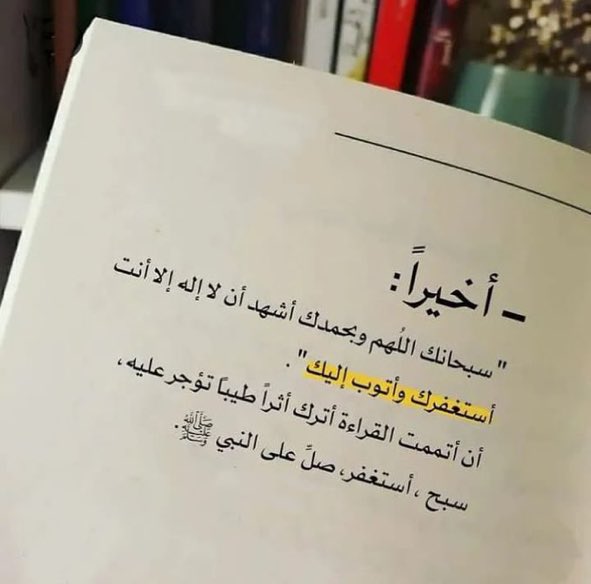 - أخيراً:
"سبحانك اللهم وبحمدك أشهد أن لا إله إلا أنت
أستغفرك وأتوب إليك".
أن أتممت القراءة أترك أثراً طيبًا تؤجر عليه،
سبح ، أستغفر، صلِّ على النبي ﷺ.